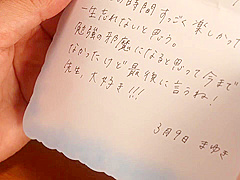 の時間すっごく楽しかって
一生忘れないと思う。
勉強の邪魔になると思って今まで
なかったけど最後に言うね!
先生、大好き!!!
3月9日 まゆき